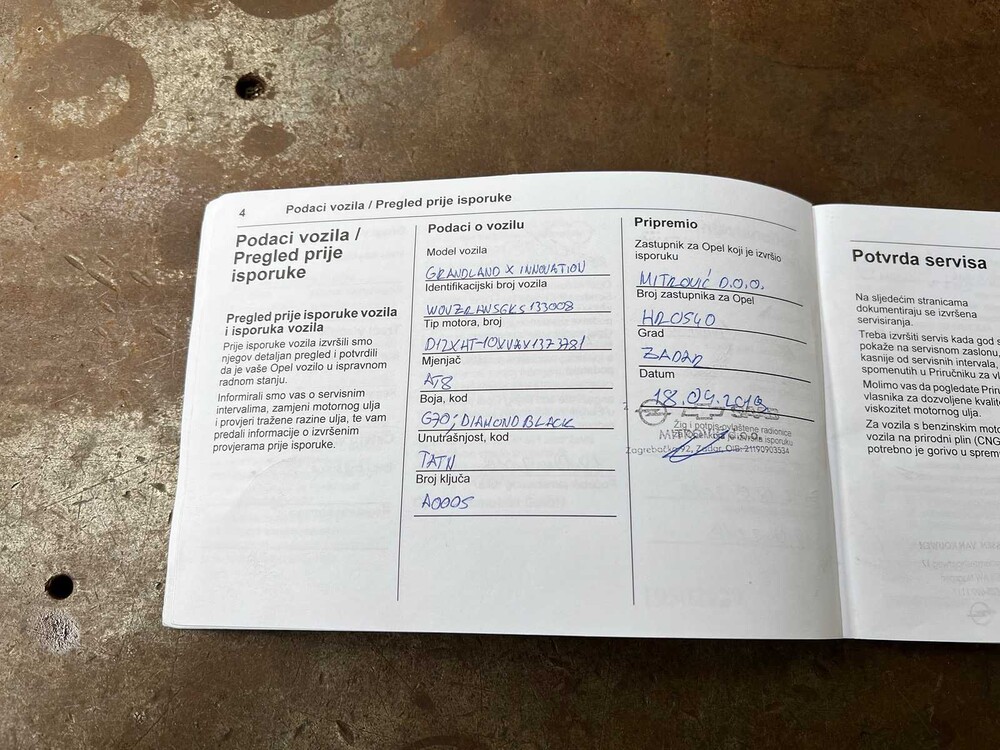 4 Podaci vozila / Pregled prije isporuke
Podaci vozila /
Pregled prije
isporuke
Pregled prije isporuke vozila
i isporuka vozila
Prije isporuke vozila izvršili smo
njegov detaljan pregled i potvrdili
da je vaše Opel vozilo u ispravnom
radnom stanju.
Informirali smo vas o servisnim
intervalima, zamjeni motornog ulja
i provjeri tražene razine ulja, te vam
predali informacije o izvršenim
provjerama prije isporuke.
Podaci o vozilu
Model vozila
GRANDLAND X INNOVATION
Identifikacijski broj vozila
Tip motora, broj
Mjenjač
AT8
Boja, kod
G70; DIAMOND BLACK
Unutrašnjost, kod
TATN
Broj ključa
A0005
Pripremio
Zastupnik za Opel koji je izvršio
isporuku
MITROVIĆ D.O.O.
Broj zastupnika za Opel
HR0540
Grad
ZADAR
Datum
18.04.2019
Žig i potpis ovlaštene radionice
MITROVIĆ d.o.o.
Zagrebačka 92, Zadar, OIB: 21190903534
Potvrda servisa
Na sljedećim stranicama
dokumentiraju se izvršena
servisiranja.
Treba izvršiti servis kada god s
pokaže na servisnom zaslonu,
kasnije od servisnih intervala,
spomenutih u Priručniku za vl
Molimo vas da pogledate Prir
vlasnika za dozvoljene kvalite
viskozitet motornog ulja.
Za vozila s benzinskim moto
vozila na prirodni plin (CNG
potrebno je gorivo u sprem